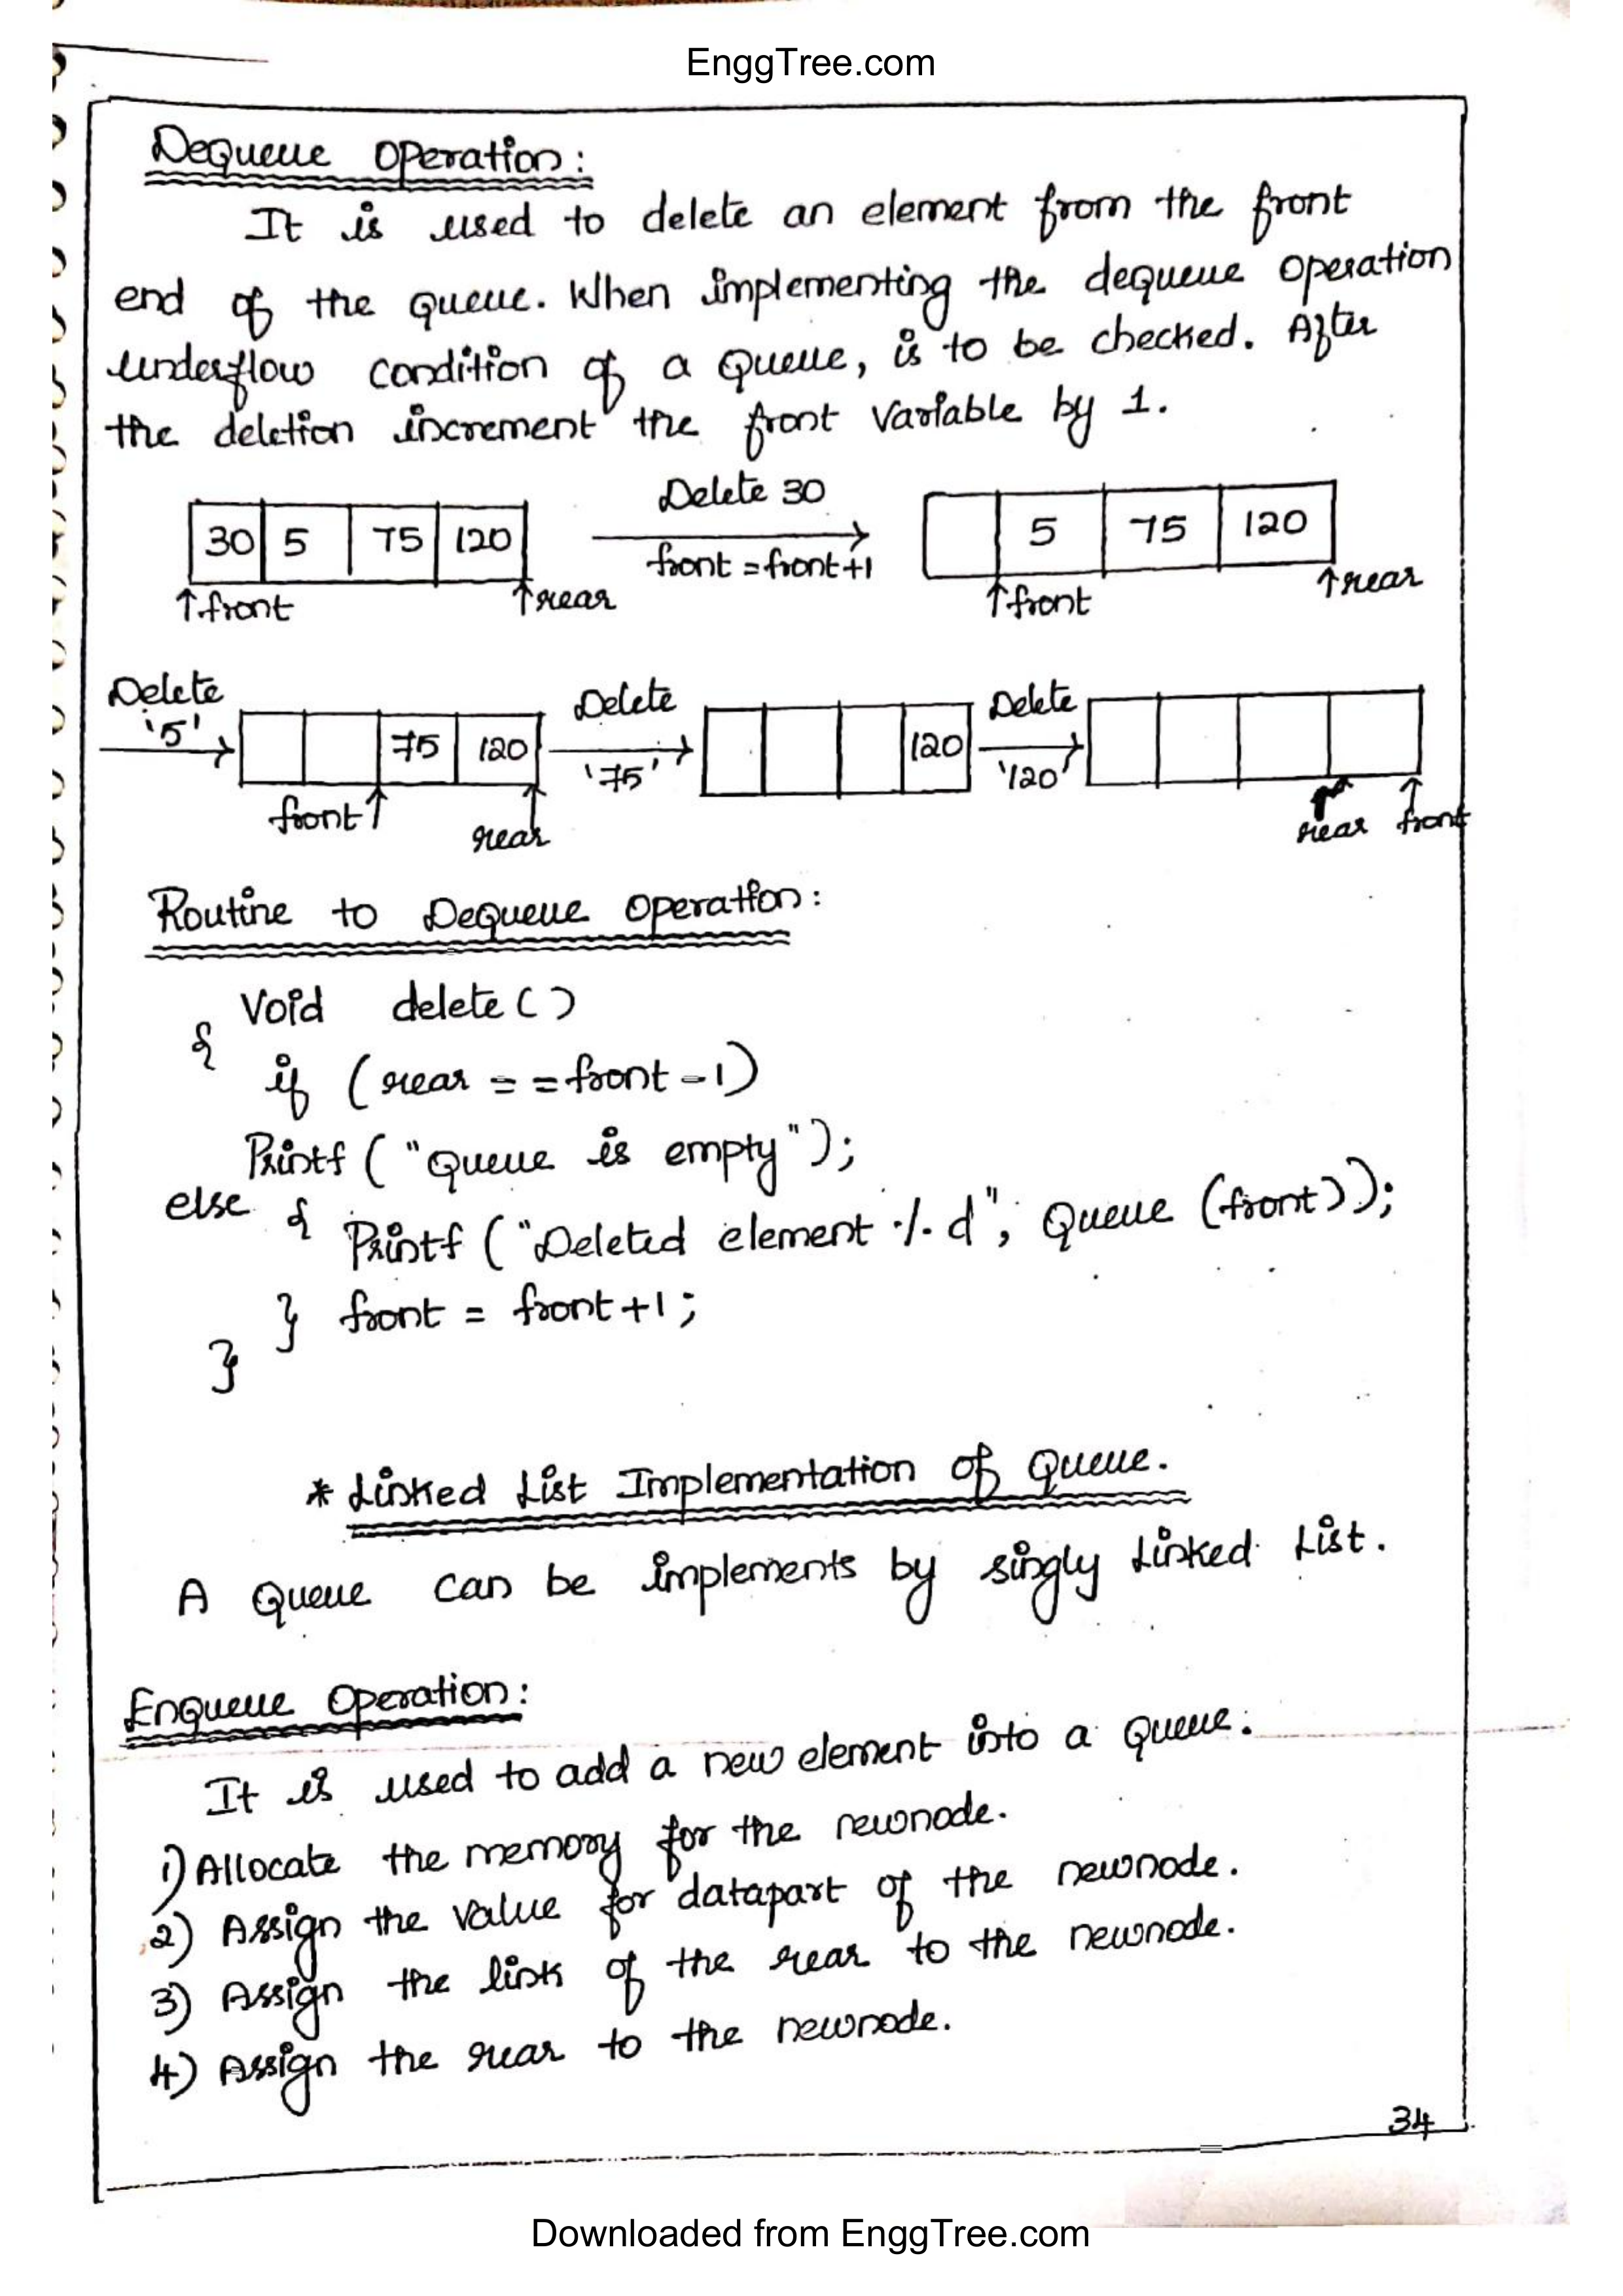 EnggTree.com
Dequeue Operation:
It is used to delete an element from the front
end of the Queue. When implementing the dequeue operation
underflow condition of a Queue, is to be checked. After
the deletion increment the front variable by 1.
Delete 30
30 5 75 120
5 75 120
front = front+1
↑front ↑rear ↑front ↑rear
Delete Delete Delete
'5' 75 120 120
'75' '120'
front↑ rear rear front
Routine to Dequeue operation:
Void delete ( )
{
if (rear = = front - 1)
Printf ( "Queue is empty");
else { Printf ("Deleted element %d", Queue (front));
} front = front+1;
}
* Linked List Implementation of Queue.
A Queue can be implements by singly Linked List.
Enqueue Operation:
It is used to add a new element into a Queue.
1) Allocate the memory for the newnode.
2) Assign the value for datapart of the newnode.
3) Assign the link of the rear to the newnode.
4) Assign the rear to the newnode.
34
Downloaded from EnggTree.com